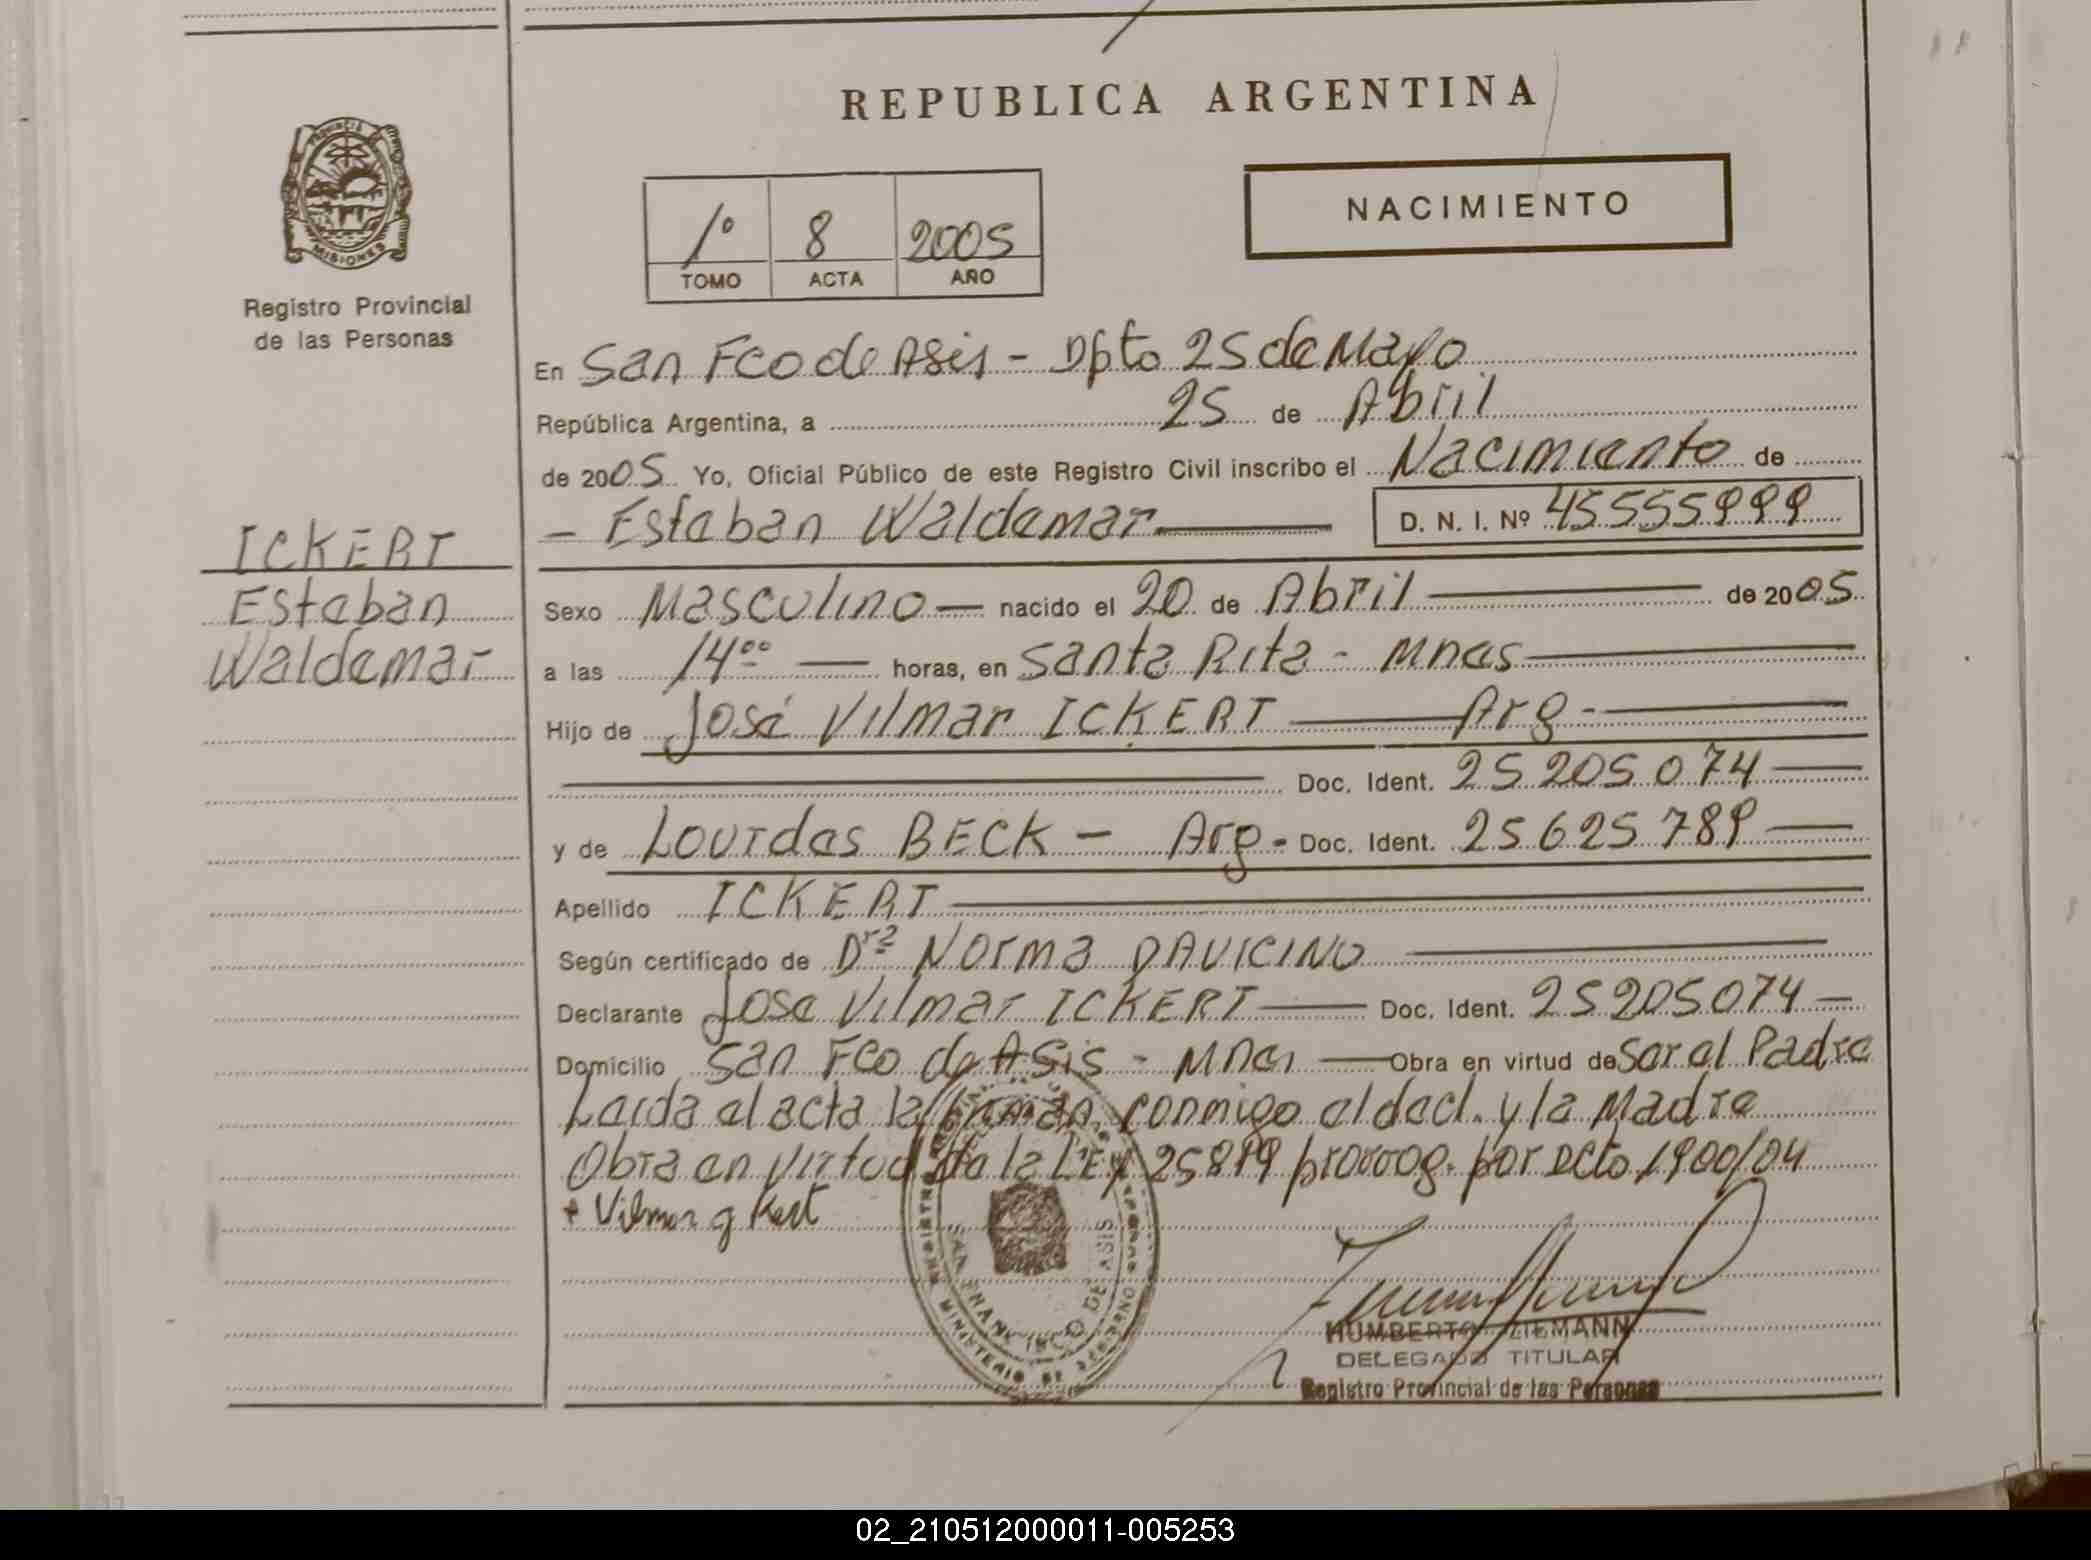 REPUBLICA ARGENTINA
PROVINCIA
MISIONES
Registro Provincial
de las Personas
1º 8 2005
TOMO ACTA AÑO
NACIMIENTO
En San Fco de Asis - Dpto 25 de Mayo
República Argentina, a 25 de Abril
de 2005 Yo, Oficial Público de este Registro Civil inscribo el Nacimiento de
- Esteban Waldemar D. N. I. Nº 45555999
ICKERT
Esteban
Waldemar
Sexo Masculino nacido el 20 de Abril de 2005
a las 14⁰⁰ horas, en Santa Rita - Mnes
Hijo de José Vilmar ICKERT Arg -
Doc. Ident. 25 205 074
y de Lourdes BECK - Arg - Doc. Ident. 25 625 789
Apellido ICKERT
Según certificado de Drª Norma DAVICINO
Declarante Jose Vilmar ICKERT Doc. Ident. 25 205 074
Domicilio San Fco de Asis - Mnes Obra en virtud de Ser el Padre
Leida el acta la firman conmigo el decl. y la Madre
Obra en virtud de la LEY 25819 prorrog. por Dcto 1900/04
+ Vilmar
SAN FRANCISCO DE ASIS
MINISTERIO DE GOBIERNO
HUMBERTO ZIEMANN
DELEGADO TITULAR
Registro Provincial de las Personas
02_210512000011-005253